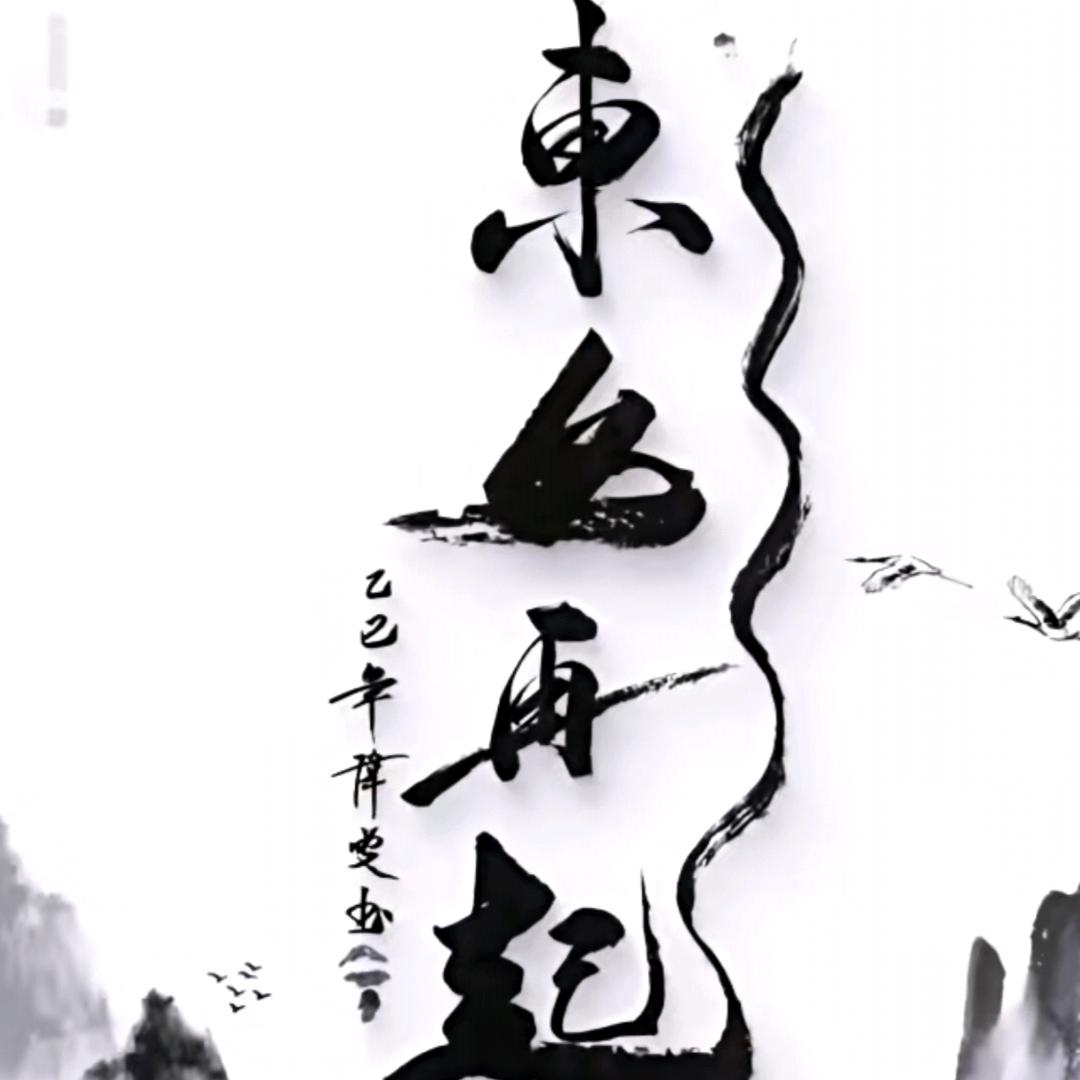 東山再起
乙巳年雯书